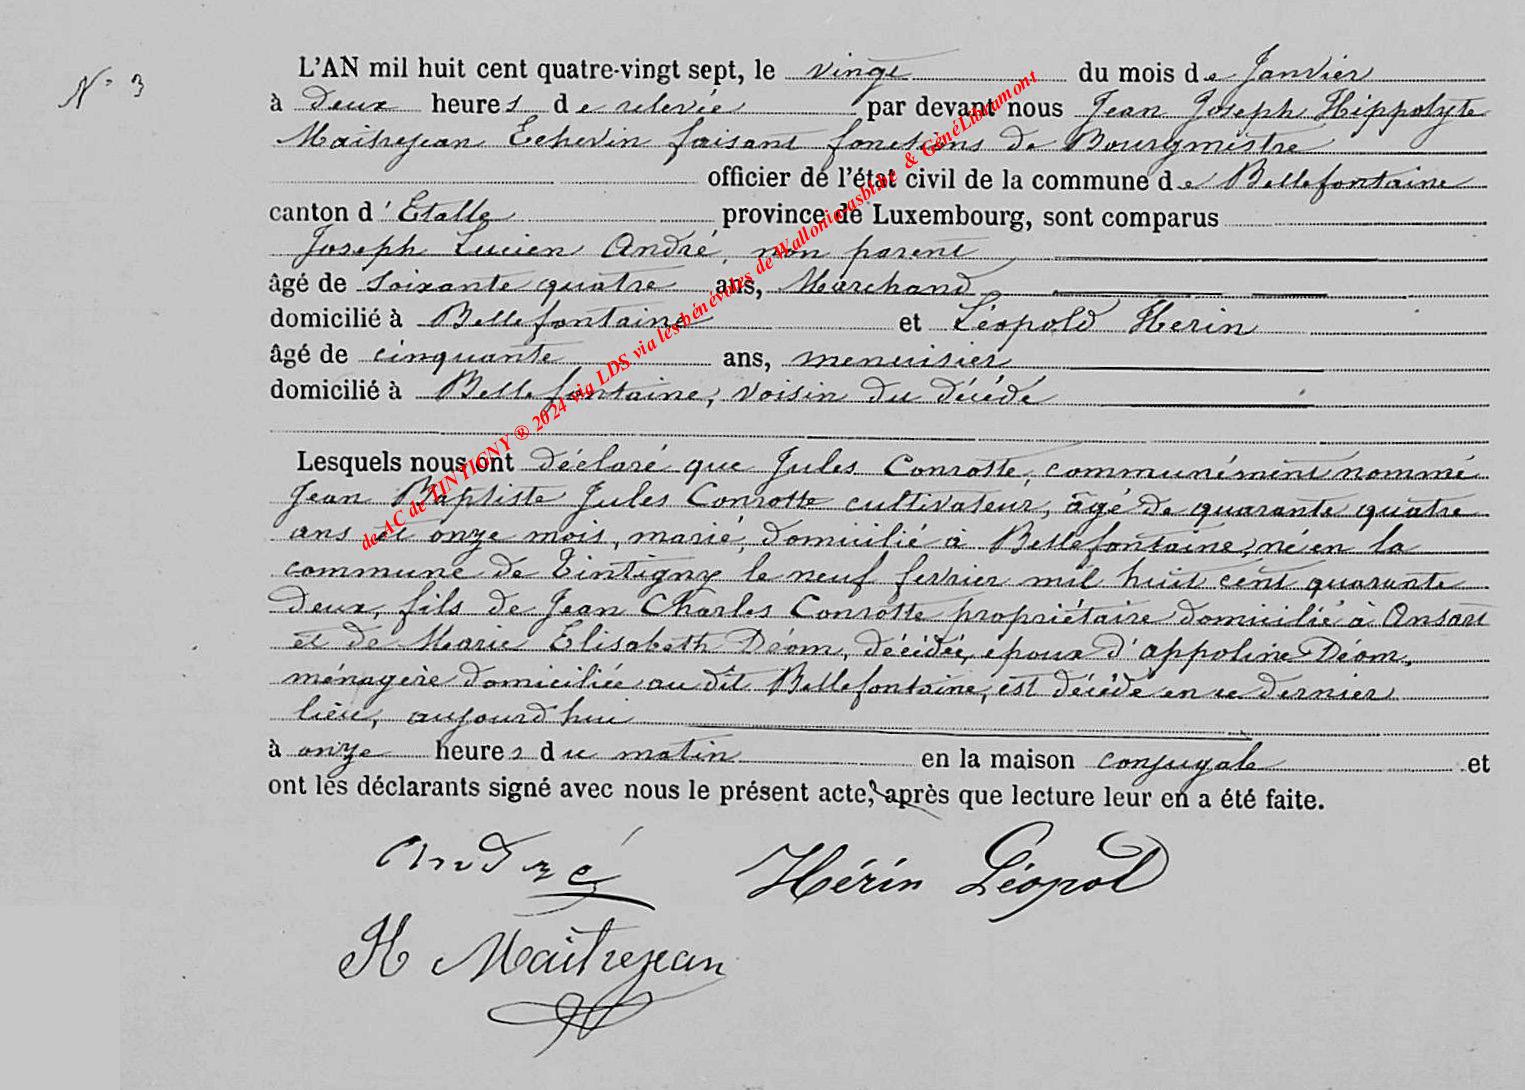 N° 3
L'AN mil huit cent quatre-vingt sept, le vingt du mois de Janvier
à deux heures de relevée par devant nous Jean Joseph Hippolyte
Maitrejean Echevin faisant fonctions de Bourgmestre
officier de l'état civil de la commune de Bellefontaine
canton d'Etalle province de Luxembourg, sont comparus
Joseph Lucien André, non parent
âgé de soixante quatre ans, Marchand
domicilié à Bellefontaine et Léopold Herin
âgé de cinquante ans, menuisier
domicilié à Bellefontaine, voisin du décédé
Lesquels nous ont déclaré que Jules Conrotte, communément nommé
Jean Baptiste Jules Conrotte cultivateur, âgé de quarante quatre
ans et onze mois, marié, domicilié à Bellefontaine, né en la
commune de Tintigny le neuf fevrier mil huit cent quarante
deux, fils de Jean Charles Conrotte propriétaire domicilié à Ansart
et de Marie Elisabeth Déom, décédée, époux d'appoline Déom,
ménagère domiciliée au dit Bellefontaine, est décédé en ce dernier
lieu, aujourd'hui
à onze heures du matin en la maison conjugale et
ont les déclarants signé avec nous le présent acte, après que lecture leur en a été faite.
André Hérin Léopold
H Maitrejean
de AC de TINTIGNY ® 2024 via LDS via les bénévoles de Wallonica asbl.be & GénéLibramont